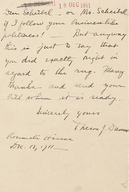 19 DEC 1911
Dear Scheibel - or Mr. Scheibel
if I follow your businesslike
politeness! - But anyway
this is just to say that
you did exactly right in
regard to the rug. Many
thanks - and send your
bill when it is ready.
Sincerely yours
Dec. 17, 1911 -